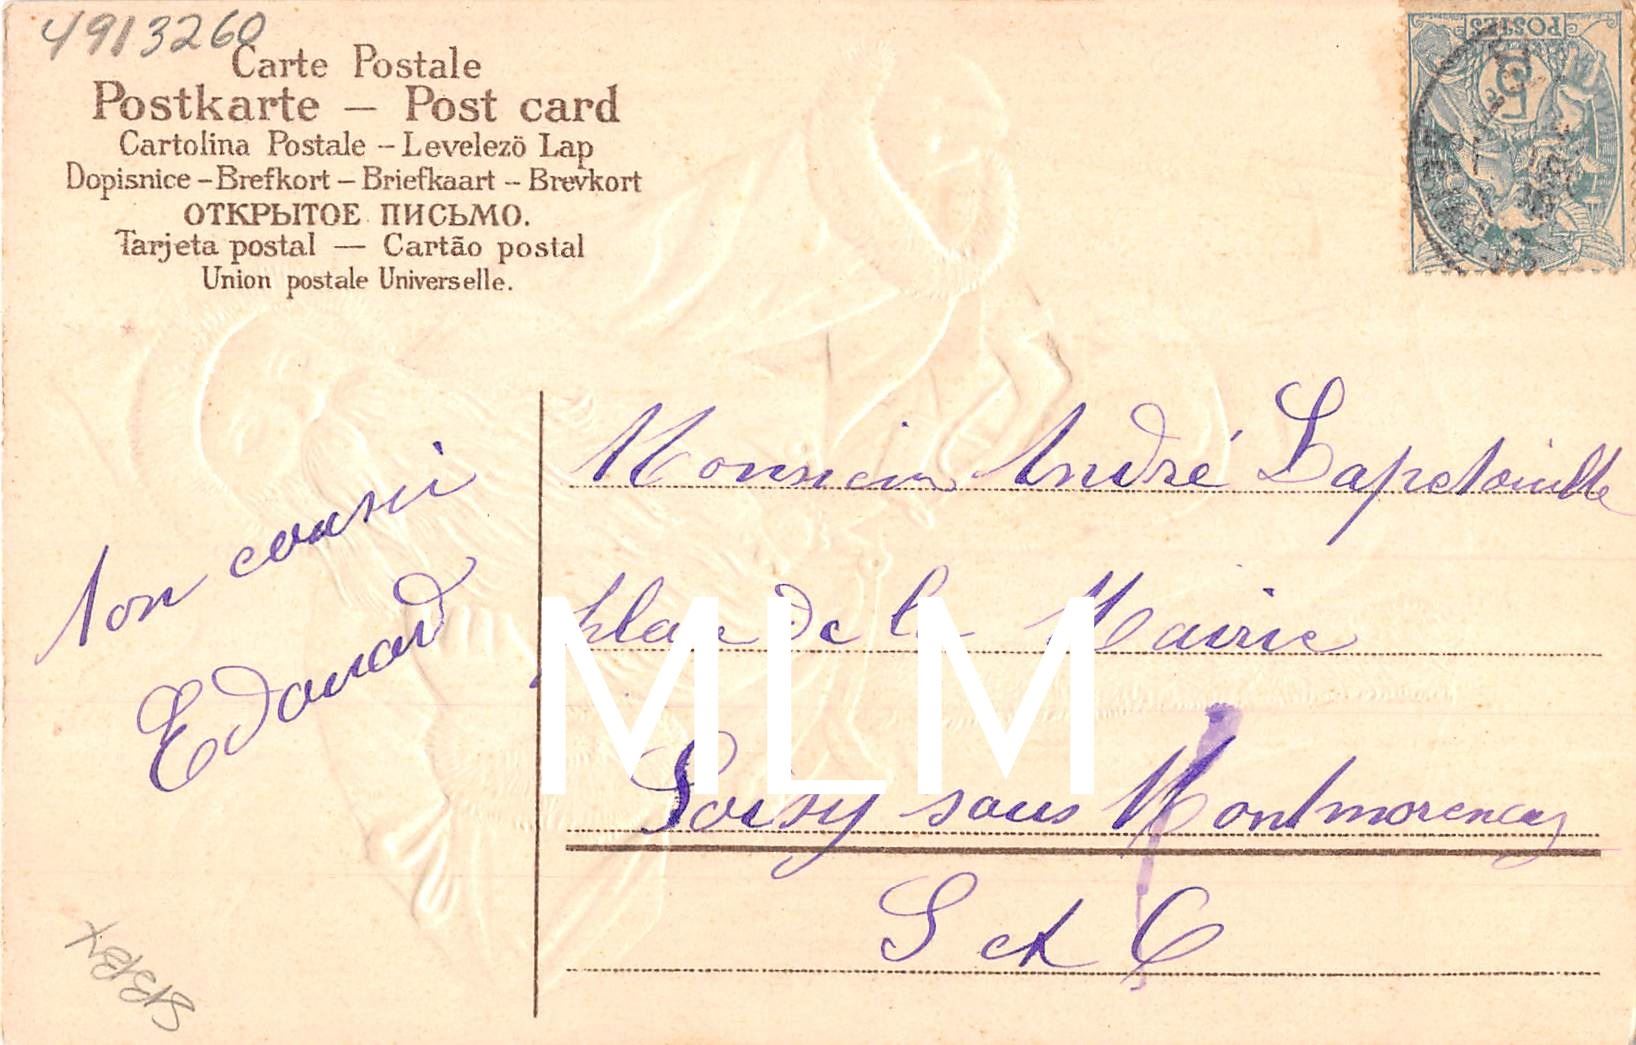 4913260
Carte Postale
Postkarte — Post card
Cartolina Postale – Levelezö Lap
Dopisnice – Brefkort – Briefkaart – Brevkort
ОТКРЫТОЕ ПИСЬМО.
Tarjeta postal — Cartão postal
Union postale Universelle.
POSTES
5
ton cousin
Edouard
Monsieur André
place de la Mairie
Soisy sous Montmorency
S et O
MLM